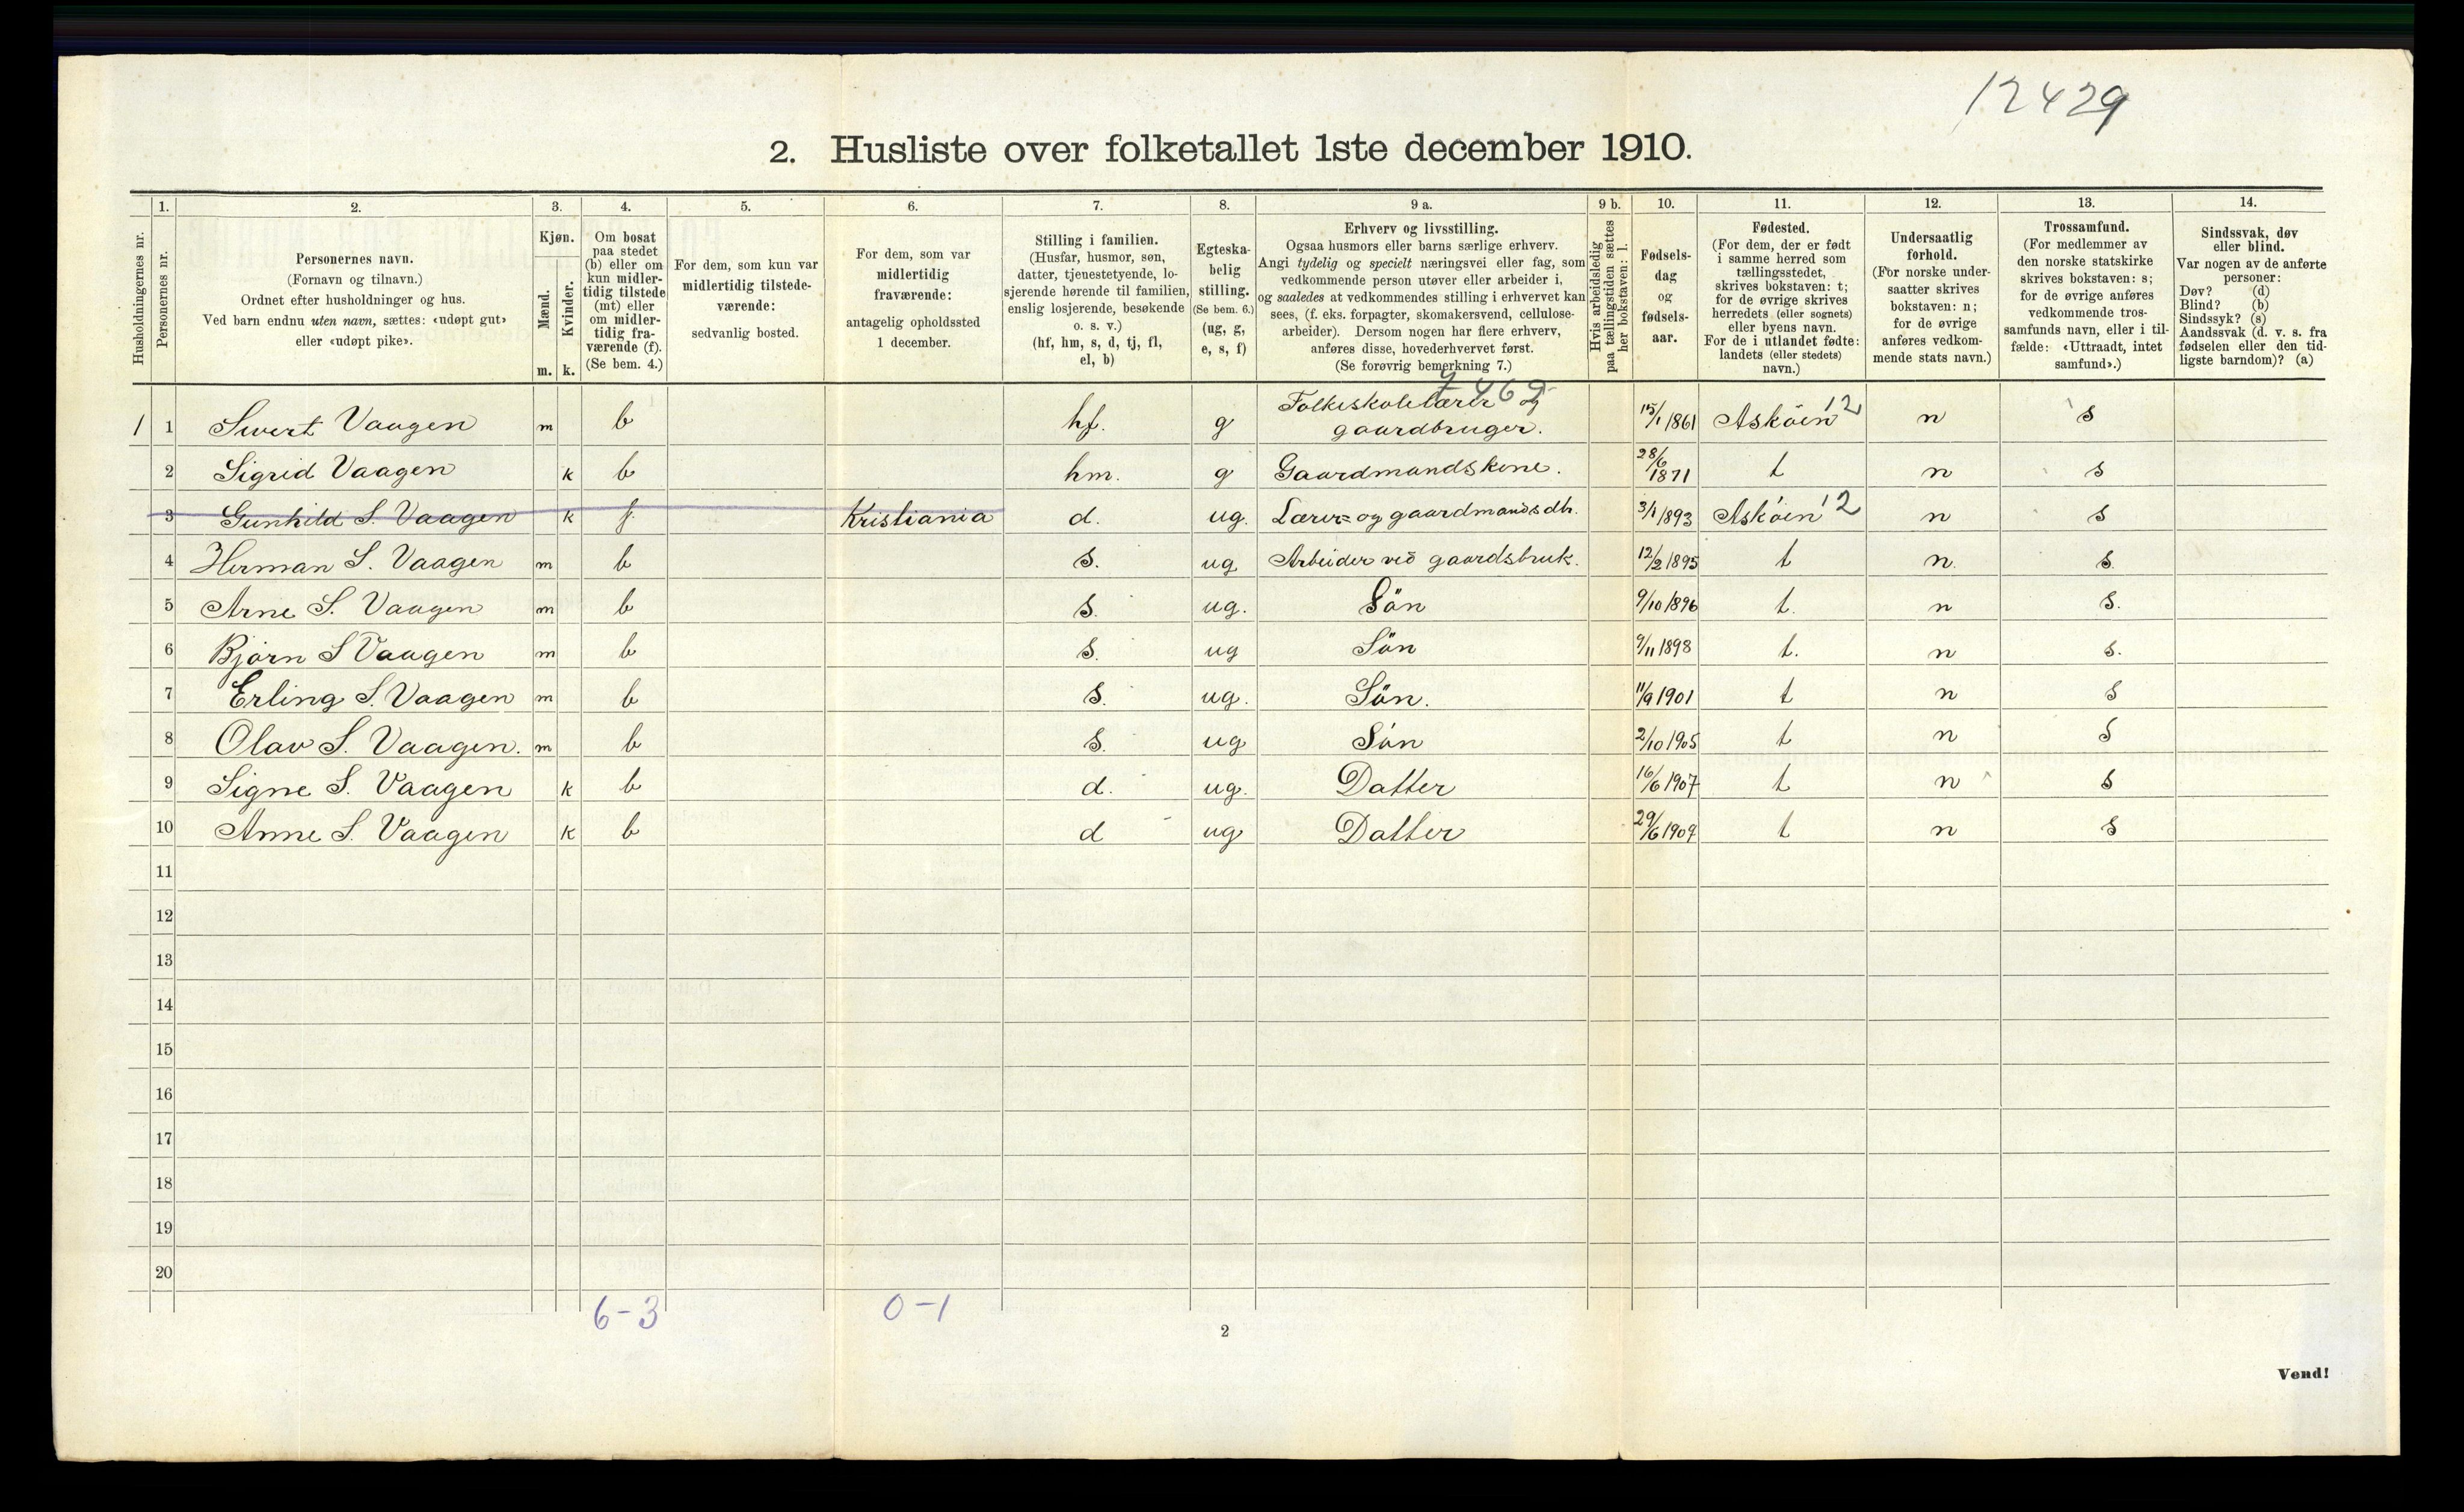 12429
2. Husliste over folketallet 1ste december 1910.
Husholdningernes nr.
1.
Personernes nr.
2.
Personernes navn.
(Fornavn og tilnavn.)
Ordnet efter husholdninger og hus.
Ved barn endnu uten navn, sættes: «udøpt gut»
eller «udøpt pike».
3.
Kjøn.
Mænd.
Kvinder.
m. k.
4.
Om bosat
paa stedet
(b) eller om
kun midler-
tidig tilstede
(mt) eller
om midler-
tidig fra-
værende (f).
(Se bem. 4.)
5.
For dem, som kun var
midlertidig tilstede-
værende:
sedvanlig bosted.
6.
For dem, som var
midlertidig
fraværende:
antagelig opholdssted
1 december.
7.
Stilling i familien.
(Husfar, husmor, søn,
datter, tjenestetyende, lo-
sjerende hørende til familien,
enslig losjerende, besøkende
o. s. v.)
(hf, hm, s, d, tj, fl,
el, b)
8.
Egteska-
belig
stilling.
(Se bem. 6.)
(ug, g,
e, s, f)
9 a.
Erhverv og livsstilling.
Ogsaa husmors eller barns særlige erhverv.
Angi tydelig og specielt næringsvei eller fag, som
vedkommende person utøver eller arbeider i,
og saaledes at vedkommendes stilling i erhvervet kan
sees, (f. eks. forpagter, skomakersvend, cellulose-
arbeider). Dersom nogen har flere erhverv,
anføres disse, hovederhvervet først.
(Se forøvrig bemerkning 7.)
9 b.
Hvis arbeidsledig
paa tællingstiden sættes
her bokstaven: l.
10.
Fødsels-
dag
og
fødsels-
aar.
11.
Fødested.
(For dem, der er født
i samme herred som
tællingsstedet,
skrives bokstaven: t;
for de øvrige skrives
herredets (eller sognets)
eller byens navn.
For de i utlandet fødte:
landets (eller stedets)
navn.)
12.
Undersaatlig
forhold.
(For norske under-
saatter skrives
bokstaven: n;
for de øvrige
anføres vedkom-
mende stats navn.)
13.
Trossamfund.
(For medlemmer av
den norske statskirke
skrives bokstaven: s;
for de øvrige anføres
vedkommende tros-
samfunds navn, eller i til-
fælde: «Uttraadt, intet
samfund».)
14.
Sindssvak, døv
eller blind.
Var nogen av de anførte
personer:
Døv? (d)
Blind? (b)
Sindssyk? (s)
Aandssvak (d. v. s. fra
fødselen eller den tid-
ligste barndom)? (a)
1 1 Sivert Vaagen m b hf. g Folkeskolelærer og gaardbruger. 15/1 1861 Askøen 12 n s
2 Sigrid Vaagen k b hm. g Gaardmandskone. 28/6 1871 t n s
3 Gunhild S. Vaagen k f. Kristiania d. ug. Lærer= og gaardmandsdtr. 3/1 1893 Askøen 12 n s
4 Herman S. Vaagen m b s. ug Arbeider ved gaardsbruk. 12/2 1895 t n. s.
5 Arne S. Vaagen m b s. ug. Sön 9/10 1896 t. n s.
6 Bjørn S Vaagen m b s. ug Sön 9/11 1898 t. n s.
7 Erling S. Vaagen m b s. ug. Sön. 11/9 1901 t n s
8 Olav S. Vaagen. m b s. ug Sön 2/10 1905 t n s
9 Signe S. Vaagen k b d. ug. Datter 16/6 1907 t n s
10 Anne S. Vaagen k b d ug Datter 29/6 1909 t n s
11
12
13
14
15
16
17
18
19
20
6-3 0-1
2
Vend!